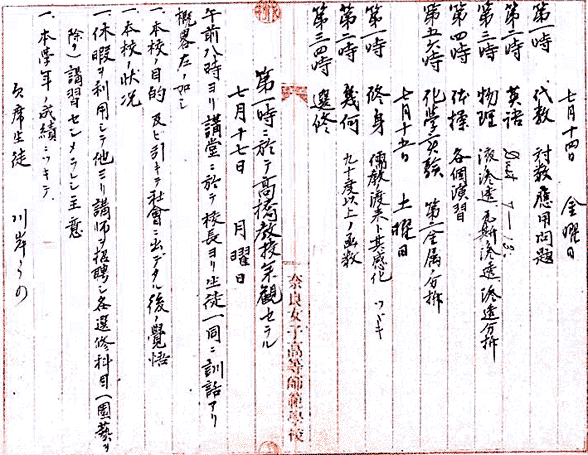 七月十四日 金曜日
第一時 代数 対数應用問題
第二時 英語
第三時 物理 液滲透 瓦斯滲透 滲透分拆
第四時 体操 各個演習
第五六時 化學実驗 第二金属分拆
七月十五日 土曜日
第一時 修身 儒教渡来ト其感化 ツヾキ
第二時 幾何 九十度以上ノ函数
第三四時 選修
第一時ニ於テ高橋教授来観セラル
奈良女子高等師範學校
七月十七日 月曜日
午前八時ヨリ講堂ニ於テ校長ヨリ生徒一同ニ訓話アリ
概畧左ノ如シ
一、本校ノ目的及ビ引キテ社會ニ出デタル後ノ覺悟
一、本校ノ状况
一、休暇ヲ利用シテ他ヨリ講師ヲ招聘シ各選修科目(園藝ヲ
除ク)講習センメラレシ主意
一、本學年ノ成績ニツキテ
欠席生徒 川岸うの